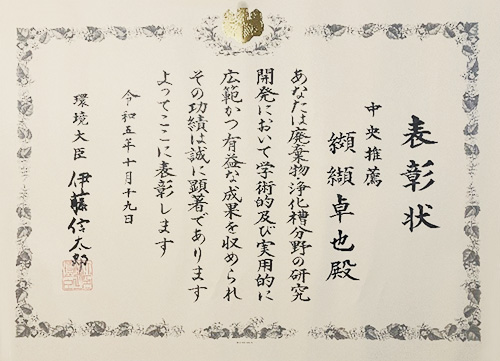 表彰状
中央推薦
纐纈卓也殿
あなたは廃棄物・浄化槽分野の研究
開発において学術的及び実用的に
広範かつ有益な成果を収められ
その功績は誠に顕著であります
よってここに表彰します
令和五年十月十九日
環境大臣 伊藤信太郎